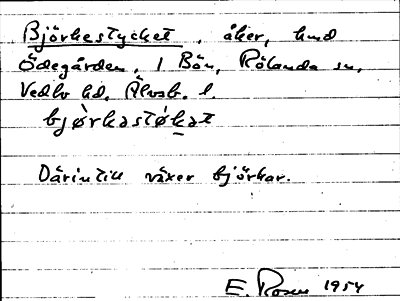 Björkestycket, åker, hmd
Ödegården, 1 Bön, Rölanda sn,
Vedbo hd, Älvsb. l.
bjørkəstøkət
Därintill växer björkar.
E. Rosen 1954